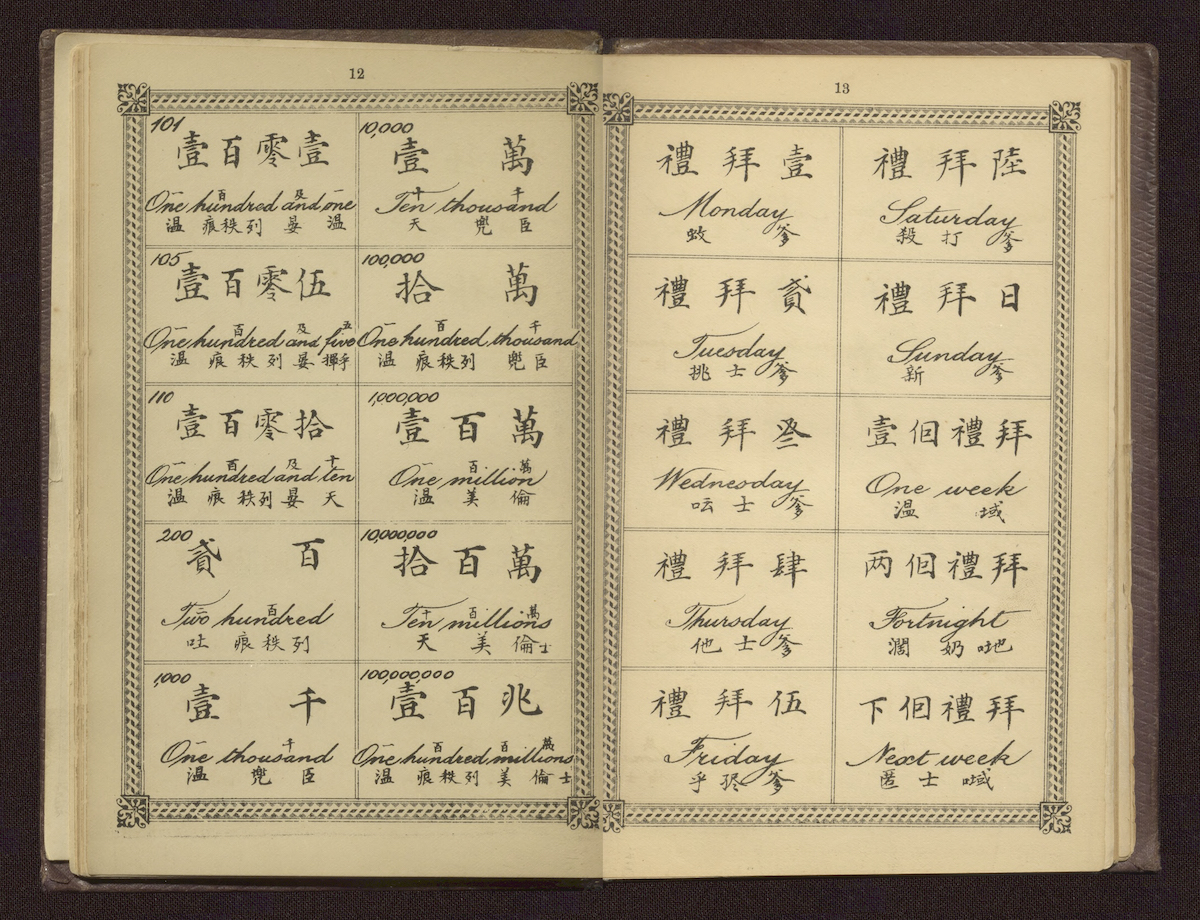 12
101
壹百零壹
一 百 及 一
One hundred and one
温 痕秩列 晏 温
10,000
壹 萬
十 千
Ten thousand
天 兜 臣
105
壹百零伍
一 百 及 五
One hundred and five
温 痕 秩列 晏 㩇乎
100,000
拾 萬
一 百 千
One hundred thousand
温 痕秩列 兜臣
110
壹百零拾
一 百 及 十
One hundred and ten
温 痕 秩列 晏 天
1,000,000
壹百萬
一 百 萬
One million
温 美 倫
200
貳 百
二 百
Two hundred
吐 痕秩列
10,000,000
拾百萬
十 百 萬
Ten millions
天 美 倫士
1,000
壹 千
一 千
One thousand
温 兜 臣
100,000,000
壹百兆
一 百 百 萬
One hundred millions
温 痕秩列 美 倫士
13
禮拜壹
Monday
蚊 爹
禮拜陸
Saturday
殺打爹
禮拜貳
Tuesday
挑士爹
禮拜日
Sunday
新 爹
禮拜叄
Wednesday
呍士爹
壹個禮拜
One week
温 域
禮拜肆
Thursday
他士爹
两個禮拜
Fortnight
濶 奶 哋
禮拜伍
Friday
乎 爹
下個禮拜
Next week
匿士 域